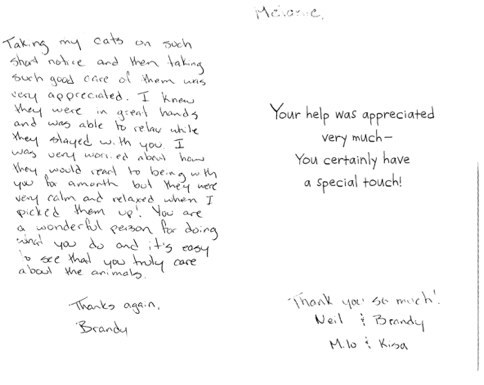 Taking my cats on such
short notice and then taking
such good care of them was
very appreciated. I knew
they were in great hands
and was able to relax while
they stayed with you. I
was very worried about how
they would react to being with
you for a month but they were
very calm and relaxed when I
picked them up! You are
a wonderful person for doing
what you do and it's easy
to see that you truly care
about the animals.
Thanks again,
Brandy
Melanie,
Your help was appreciated
very much—
You certainly have
a special touch!
Thank you so much!
Neil & Brandy
Milo & Kisa